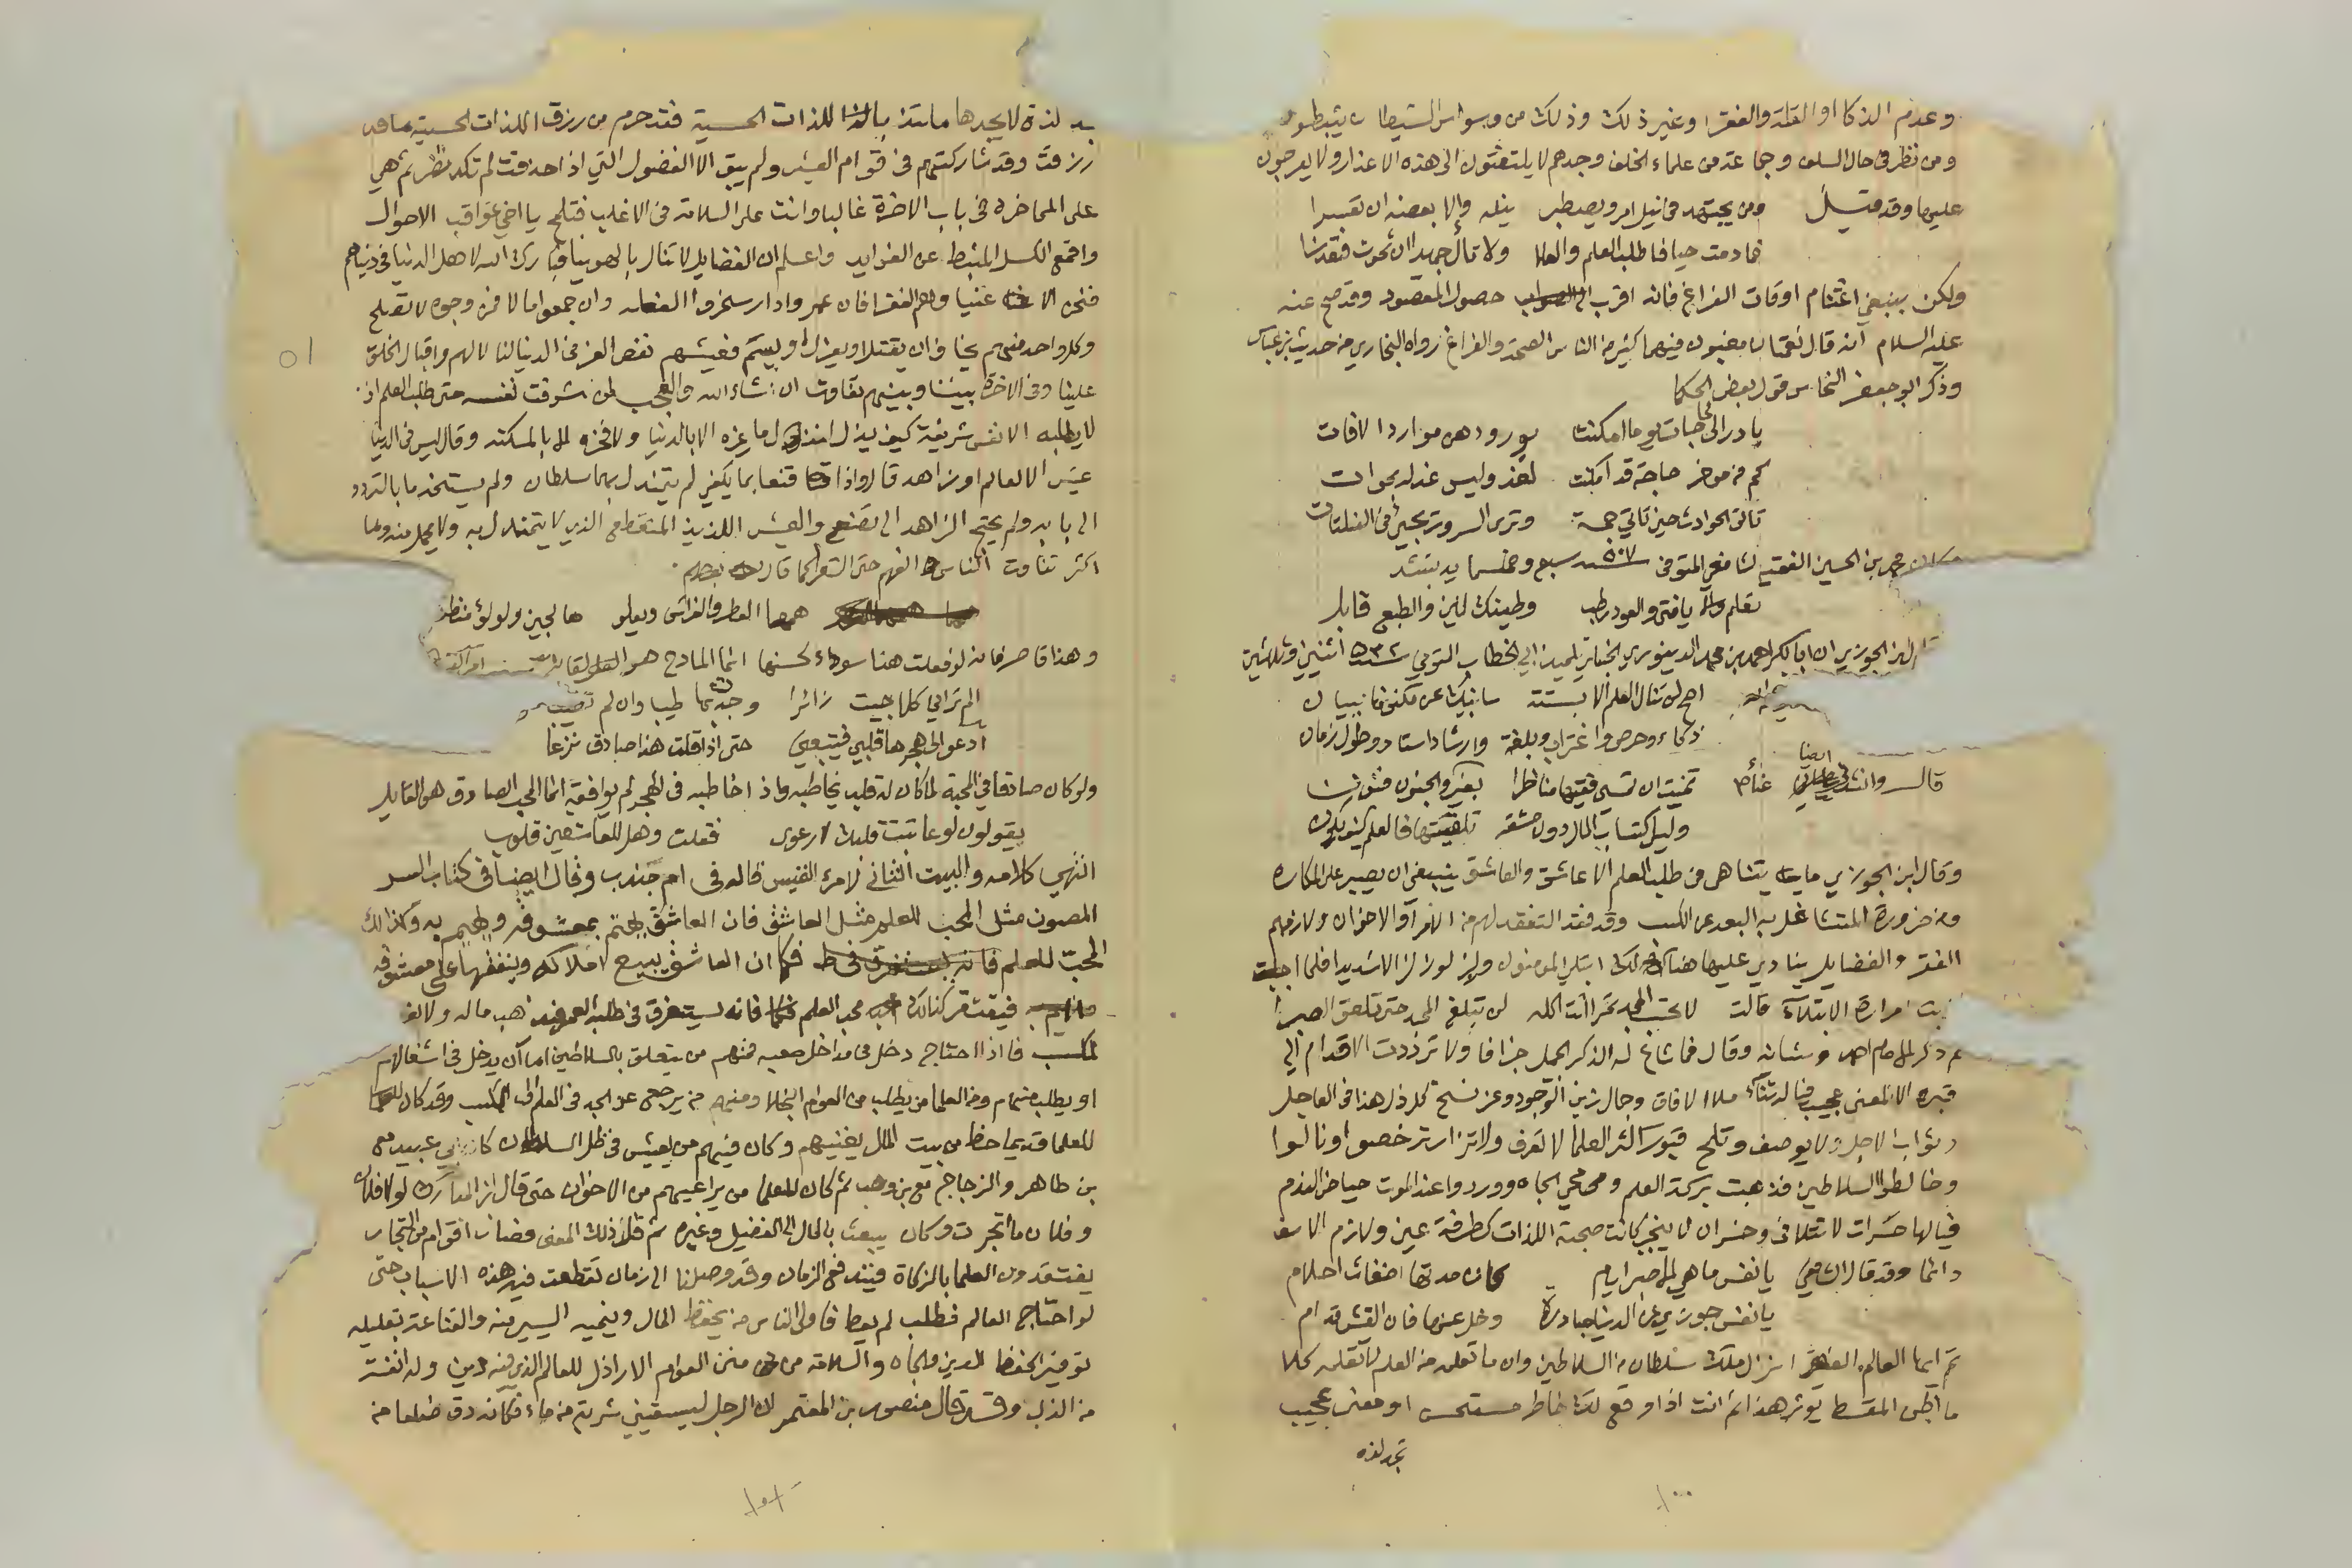 وعدم الذكا او القلة والفقر او غير ذلك وذلك من وسواس الشيطان يثبطهم
ومن نظر في حال السلف وجماعة من علماء الخلف وجدهم لا يلتفتون الى هذه الاعذار ولا يعرجون
عليها وقد قيل ومن يجتهد في نيل امر ويصطبر ينله والا بعضه ان تعسرا
فما دمت حيا فاطلب العلم والعلا ولا تأل جهدا ان تموت فتعذرا
ولكن ينبغي اغتنام اوقات الفراغ فانه اقرب حصول المقصود وقد صح عنه
عليه السلام انه قال نعمتان مغبون فيهما كثير من الناس الصحة والفراغ رواه البخاري من حديث ابن عباس
وذكر ابو جعفر النحاس قول بعض الحكما
بادر الى حاجات يوما امكنت بورودهن موارد الافات
كم من موخر حاجة قد امكنت لغد وليس غد له بموات
تاتي الحوادث حين تاتي جمة وترى السرور يجيئ في الفلتات
محمد بن الحسين الفقيه الشافعي المتوفى سنة ٥٠٧ سبع وخمسماية ينشد
تعلم يا فتى والعود رطب وطينك لين والطبع قابل
ابن الجوزي ان ابا بكر احمد بن محمد الدينوري الحنبلي تلميذ ابي الخطاب التوفي سنة ٥٣٢ اثنين وثلاثين
اخي لن تنال العلم الا بستة سانبيك عن مكنونها ببيان
ذكاء وحرص واغتراب وبلغة وارشاد استاد وطول زمان
قال وانشدني ايضا تمنيت ان تمسي فقيها مناظرا بغير والجنون فنون
وليس اكتساب المال دون مشقة تلقيتها فالعلم كيف يكون
وقال ابن الجوزي ما يتناهى في طلب العلم الا عاشق والعاشق ينبغي ان يصبر على المكاره
ومن ضرورة المتشاغل به البعد عن الكسب وقد فقد التفقد لهم من الامرآء والاخوان ولازمهم
الفقر والفضايل ينادي عليها هنالك ابتلي المومنون وزلزلوا زلزالا شديدا فلما اجابت
مرارة الابتلاء قالت لا تحسب المجد تمرا انت اكله لن تبلغ المجد حتى تلعق الصبرا
ثم ذكر للامام احمد وشانه وقال فما شاع له الذكر الجميل جزافا ولا ترددت الاقدام الى
قبره الا لمعنى عجيب فيا له ثنآء ملا الافاق وجمال زين الوجود وعز نسخ كل ذل هذا في العاجل
وثواب الاجل ولا يوصف وتلمح قبور اكثر العلما لا تعرف ولا تزار ترخصوا وتأولوا
وخالطوا السلاطين فذهبت بركة العلم ومحي الجاه ووردوا عند الموت حياض الندم
فيا لها حسرات لا تتلافى وخسران لا ينجبر كانت صحبة اللذات كطرفة عين ولازم الاسف
دائما وقد قال الشافعي يا نفس ما هي الا صبر ايام كان مدتها اضغاث احلام
يا نفس جوزي عن الدنيا مبادرة وخل عنها فان العيش قدام
ثم ايها العالم الفقير ايسرك ملك سلطان من السلاطين وان ما تعلمه من العلم لا تعلمه كلا
ما اظن المتيقظ يوثر هذا ثم انت اذا وقع لك خاطر مستحسن او معنى عجيب
تجد لذة
١٠٠
لذة لا يجدها ملتذ باللذات الحسية فقد حرم من رزق اللذات الحسية ما قد
رزقت وقد شاركتهم في قوام العيش ولم يبق الا الفضول التي اذا حذفت لم تكد تضر ثم هي
على المخاطرة في باب الاخرة غالبا وانت على السلامة في الاغلب فتلمح يا اخي عواقب الاحوال
واقمع الكسل المثبط عن الفوايد واعلم ان الفضايل لا تنال بالهوينا فبارك الله لاهل الدنيا في دنياهم
فنحن الاغنيا وهم الفقرا فان عمروا دارا سخروا الفعلة وان جمعوا مالا فمن وجوه لا تصلح
وكل واحد منهم يخاف ان يقتل او يعزل او يسم فعيشهم نغص العز في الدنيا لنا لا لهم واقبال الخلق
علينا وفي الاخرة بيننا وبينهم تفاوت ان شاء الله والعجب لمن شرفت نفسه حتى طلب العلم اذ
لا يطلبه الا نفس شريفة كيف يذل لنذل ما عزه الا بالدنيا ولا فخره الا بالمسكنة وقال ليس في الدنيا
عيش الا لعالم او زاهد قال واذا قنعا بما يكفي لم يتمندل بهما سلطان ولم يستخدما بالتردد
الى بابه ولم يحتج الزاهد الى تصنع والعيش اللذيذ للمنقطع الذي لا يتمندل به ولا يحمل منة وما
اكثر تفاوت الناس في الفهم حتى الشعرا كما قال بعضهم
همها العطر والفراش ويعلو ها لجين ولولؤ منظوم
وهذا قاصر فانه لو فعلت هذا سوداء لحسنها انما المادح هو القايل
الم ترياني كلما جيت زائرا وجدت بها طيبا وان لم تطيب
ادعو الى هجرها قلبي فيتبعني حتى اذا قلت هذا صادق نزعا
ولو كان صادقا في المحبة لما كان له قلب يخاطبه واذا خاطبه في الهجر لم يوافقه انما المحب الصادق هو القايل
يقولون لو عاتبت قلبك لارعوى فقلت وهل للعاشقين قلوب
انتهى كلامه والبيت الثاني لامرء القيس قاله في ام جندب وقال ايضا في كتاب السر
المصون مثل المحب للعلم مثل العاشق فان العاشق يهتم بمعشوقه ويهيم به وكذالك
المحب للعلم فكما ان العاشق يبيع املاكه وينفقها على معشوقه
فيفتقر كذلك محب العلم فانه يستغرق في طلبه العمر فيذهب ماله ولا
للكسب فاذا احتاج دخل في مداخل صعبة فمنهم من يتعلق بالسلاطين اما ان يدخل في اشغالهم
او يطلب منهم ومن العلما من يطلب من العوام البخلا ومنهم من يرجع عن الجد في العلم الى الكسب وقد كان
للعلما قديما حظ من بيت المال يغنيهم وكان فيهم من يعيش في ظل السلطان كابي عبيد مع
بن طاهر والزجاج مع بن وهب ثم كان للعلما من يراعيهم من الاخوان حتى قال ابن المبارك لولا فلان
وفلان ما اتجرت وكان يبعث بالمال الى الفضيل وغيره ثم قل ذلك المعنى وصار اقوام من التجار
يفتقدون العلما بالزكاة فيندفع الزمان وقد وصلنا الى زمان تقطعت فيه هذه الاسباب حتى
لو احتاج العالم فطلب لم يعط فاولى الناس من يحفظ المال وينميه اليسير منه والقناعة بقليله
توفيرا لحفظ الدين والجاه والسلامة من منن العوام الاراذل للعالم الذي فيه دين وله انفة
من الذل وقد قال منصور بن المعتمر ان الرجل ليسقيني شربة من ماء فكانه دق ضلعا من
٥١
١٠١